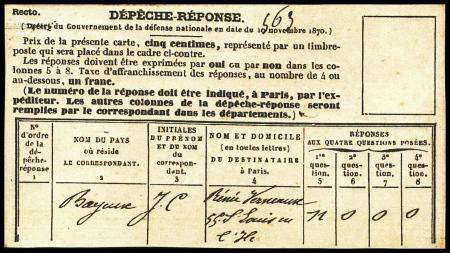 Recto.
DÉPÊCHE-RÉPONSE.
563
(Décret du Gouvernement de la défense nationale en date du 10 novembre 1870.)
Prix de la présente carte, cinq centimes, représenté par un timbre-
poste qui sera placé dans le cadre ci-contre.
Les réponses doivent être exprimées par oui ou par non dans les co-
lonnes 5 à 8. Taxe d'affranchissement des réponses, au nombre de 4 ou
au-dessous, un franc.
(Le numéro de la réponse doit être indiqué, à Paris, par l'ex-
péditeur. Les autres colonnes de la dépêche-réponse seront
remplies par le correspondant dans les départements.)
N°
d'ordre
de la
dépêche-
réponse
1
NOM DU PAYS
où réside
LE CORRESPONDANT.
2
INITIALES
DU PRÉNOM
ET DU NOM
du
correspon-
dant.
3
NOM ET DOMICILE
(en toutes lettres)
DU DESTINATAIRE
à Paris.
4
RÉPONSES
AUX QUATRE QUESTIONS POSÉES.
1re
ques-
tion.
5
2e
question.
6
3e
question.
7
4e
question.
8
Bayeux
J. C
Rénée
55 St Louis en
l'Ile
n
o
o
o